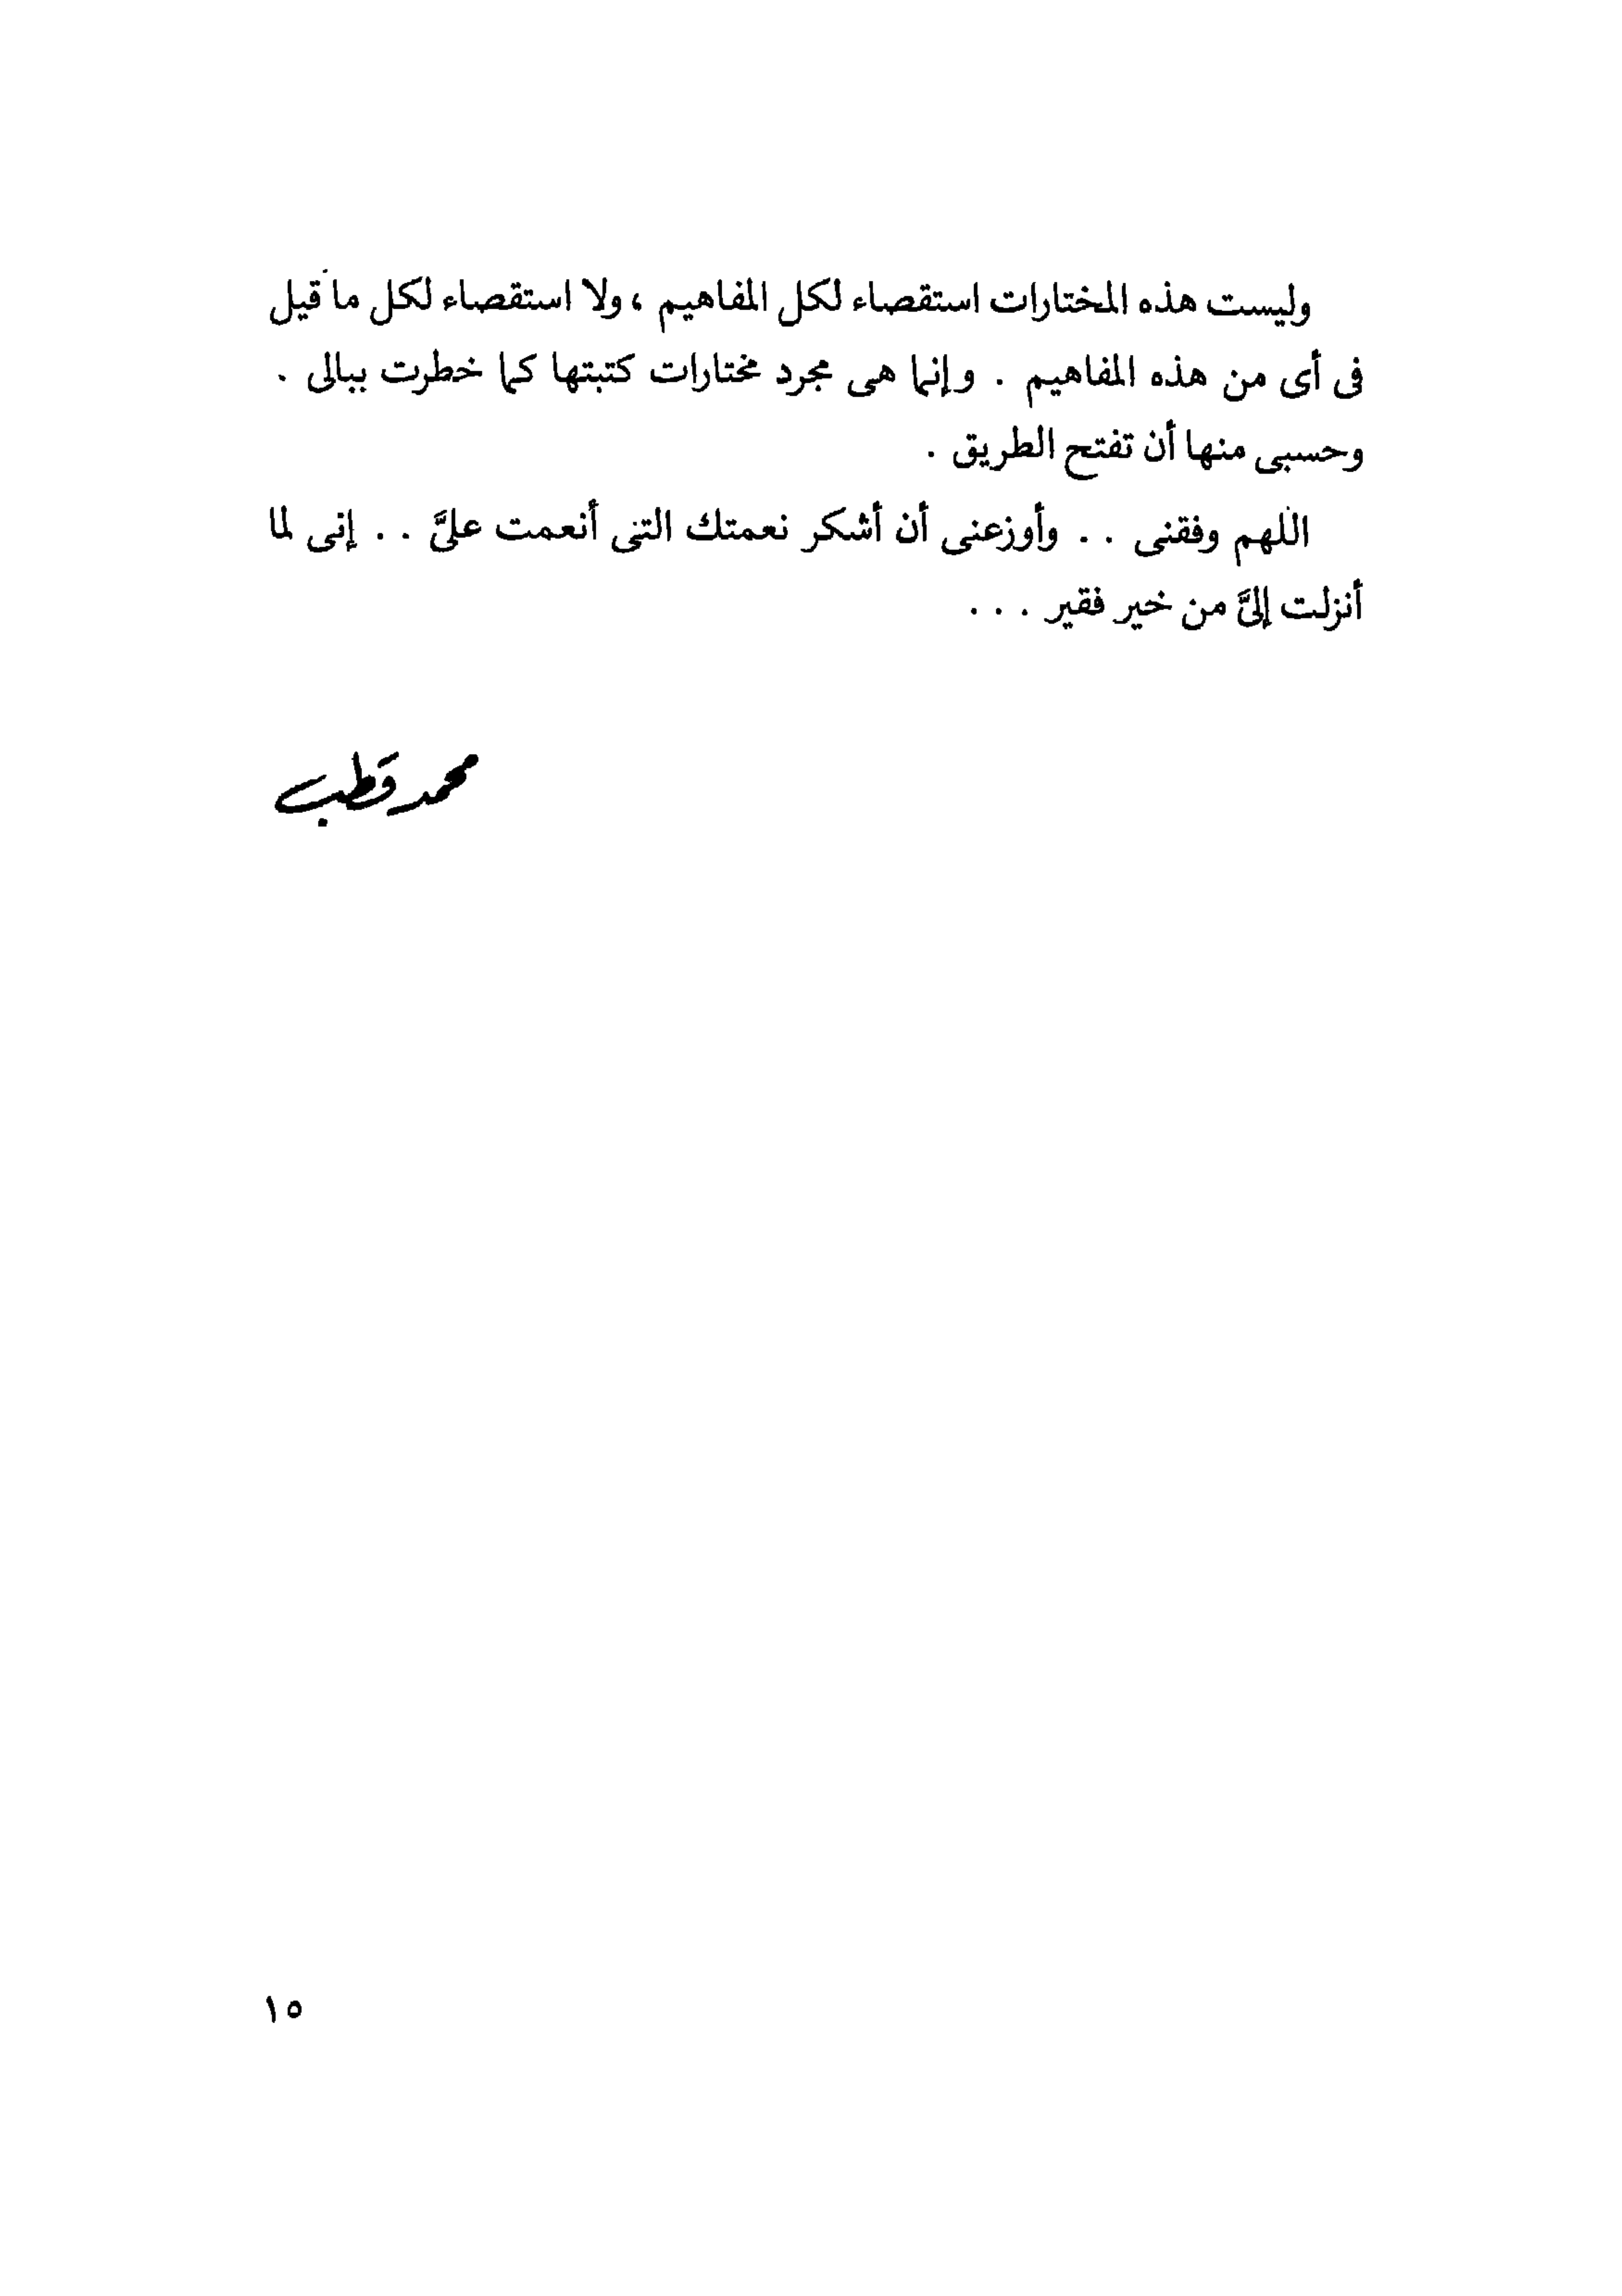 وليست هذه المختارات استقصاء لكل المفاهيم ، ولا استقصاء لكل ما قيل
فى أى من هذه المفاهيم . وإنما هى مجرد مختارات كتبتها كما خطرت ببالى .
وحسبى منها أن تفتح الطريق .
اللهم وفقنى . . وأوزعنى أن أشكر نعمتك التى أنعمت علىَّ . . إنى لما
أنزلت إلىَّ من خير فقير . . .
محمد قطب
١٥